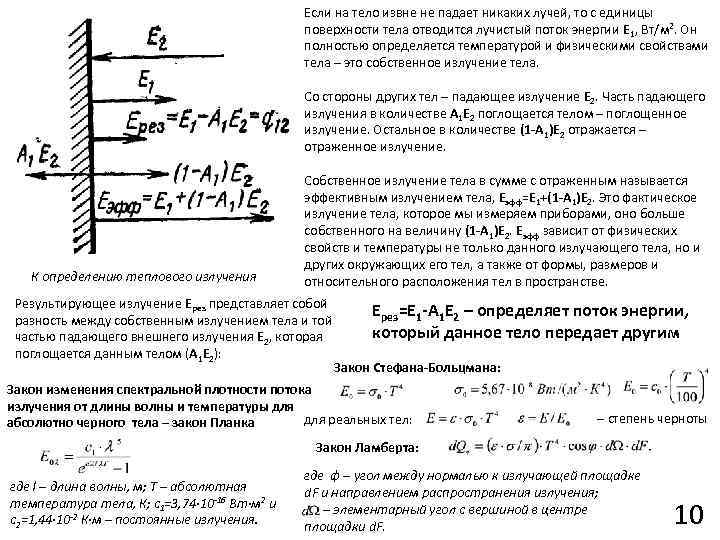 Если на тело извне не падает никаких лучей, то с единицы
поверхности тела отводится лучистый поток энергии E1, Вт/м². Он
полностью определяется температурой и физическими свойствами
тела – это собственное излучение тела.
Со стороны других тел – падающее излучение E2. Часть падающего
излучения в количестве A1E2 поглощается телом – поглощенное
излучение. Остальное в количестве (1-A1)E2 отражается –
отраженное излучение.
E2
E1
Eрез=E1-A1E2=q12
A1E2
(1-A1)E2
Eэфф=E1+(1-A1)E2
Собственное излучение тела в сумме с отраженным называется
эффективным излучением тела, Eэфф=E1+(1-A1)E2. Это фактическое
излучение тела, которое мы измеряем приборами, оно больше
собственного на величину (1-A1)E2. Eэфф зависит от физических
свойств и температуры не только данного излучающего тела, но и
других окружающих его тел, а также от формы, размеров и
относительного расположения тел в пространстве.
К определению теплового излучения
Результирующее излучение Eрез представляет собой
разность между собственным излучением тела и той
частью падающего внешнего излучения E2, которая
поглощается данным телом (A1E2):
Eрез=E1-A1E2 – определяет поток энергии,
который данное тело передает другим
Закон Стефана-Больцмана:
E0 = σ0 · T⁴ σ0 = 5,67·10⁻⁸ Вт/(м² · К⁴) E0 = c0 · (T/100)⁴
Закон изменения спектральной плотности потока
излучения от длины волны и температуры для
абсолютно черного тела – закон Планка
для реальных тел: E = ε · σ0 · T⁴ ε = E / E0 – степень черноты
E0λ = c1 · λ⁵ / (e^(c2/(λT)) − 1)
Закон Ламберта: dQφ = (ε·σ/π)·T⁴·cosφ·dΩ·dF.
где l – длина волны, м; T – абсолютная
температура тела, К; c1=3,74·10⁻¹⁶ Вт·м² и
c2=1,44·10⁻² К·м – постоянные излучения.
где ф – угол между нормалью к излучающей площадке
dF и направлением распространения излучения;
dΩ – элементарный угол с вершиной в центре
площадки dF.
10